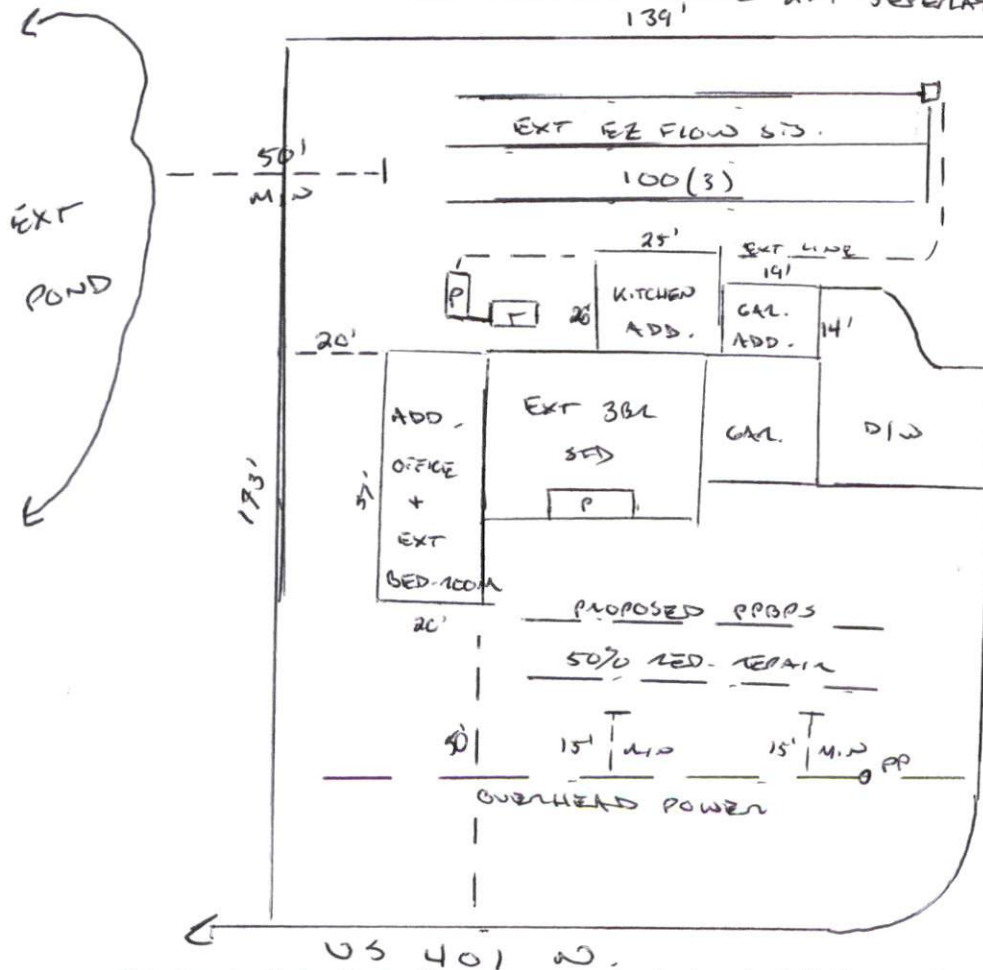 139'
EXT EZ FLOW S.D.
100(3)
50'
MIN
EXT
POND
25'
EXT LINE
19'
P
T
26'
KITCHEN
ADD.
GAR.
ADD.
14'
20'
ADD.
OFFICE
+
EXT
BED-ROOM
EXT 3BR
SFD
P
GAR.
D/W
173'
37'
20'
PROPOSED PPBPS
50% RED. REPAIR
50'
15' MIN
15' MIN
PP
OVERHEAD POWER
US 401 N.